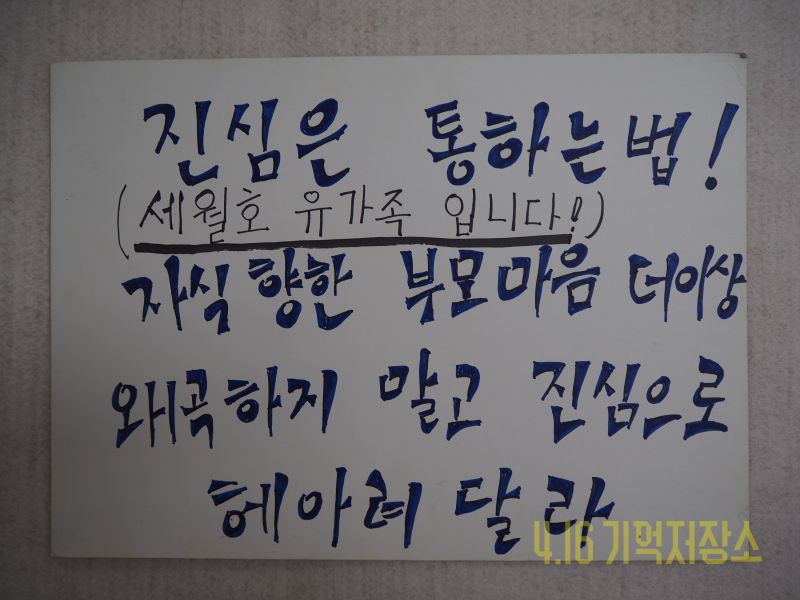 진심은 통하는법!
(세월호 유가족 입니다!)
자식향한 부모마음 더이상
왜곡하지 말고 진심으로
헤아려달라
4.16기억저장소